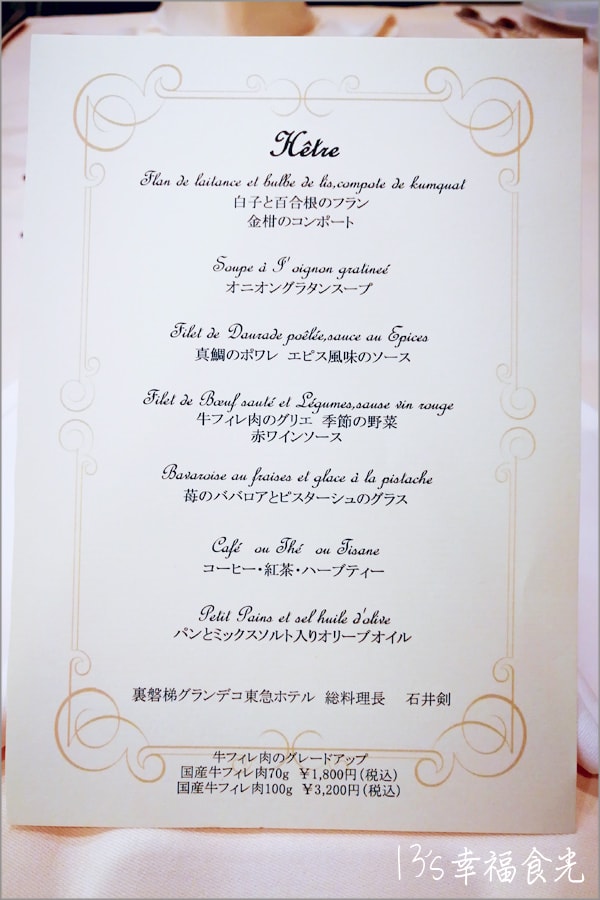 Hêtre
Flan de laitance et bulbe de lis,compote de kumquat
白子と百合根のフラン
金柑のコンポート
Soupe à I' oignon gratineé
オニオングラタンスープ
Filet de Daurade poêlée,sauce au Epices
真鯛のポワレ エピス風味のソース
Filet de Bœuf sauté et Légumes,sause vin rouge
牛フィレ肉のグリエ 季節の野菜
赤ワインソース
Bavaroise au fraises et glace à la pistache
苺のババロアとピスターシュのグラス
Café ou Thé ou Tisane
コーヒー・紅茶・ハーブティー
Petit Pains et sel huile d'olive
パンとミックスソルト入りオリーブオイル
裏磐梯グランデコ東急ホテル 総料理長 石井剣
牛フィレ肉のグレードアップ
国産牛フィレ肉70g ￥1,800円(税込)
国産牛フィレ肉100g ￥3,200円(税込)
13's幸福食光